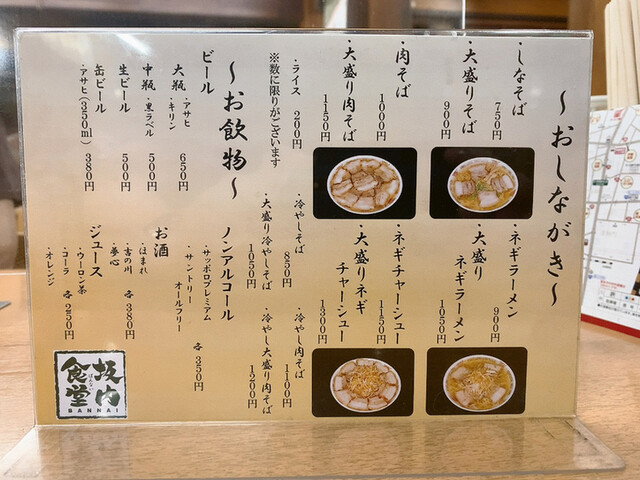 ～おしながき～
・しなそば
750円
・大盛りそば
900円
・肉そば
1000円
・大盛り肉そば
1150円
・ライス 200円
※数に限りがございます
・ネギラーメン
900円
・大盛り
ネギラーメン
1050円
・ネギチャーシュー
1150円
・大盛りネギ
チャーシュー
1300円
・冷やしそば
850円
・大盛り冷やしそば
1050円
・冷やし肉そば
1100円
・冷やし大盛り肉そば
1200円
～お飲物～
ビール
大瓶 ・アサヒ
・キリン 650円
中瓶 ・黒ラベル 500円
生ビール 500円
缶ビール
・アサヒ(350ml) 380円
ノンアルコール
・サッポロプレミアム
・サントリー
オールフリー
各 350円
お酒
・ほまれ
・宮の川
・夢心
各 380円
ジュース
・ウーロン茶
・コーラ
・オレンジ
各 250円
坂内
食堂
BANNAI